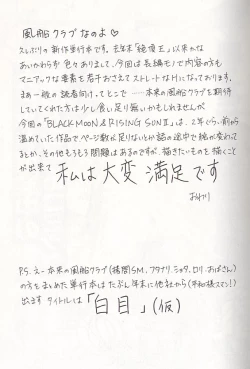 風船クラブなのよ♡
久しぶりの新作単行本です。去年末「絶頂王」以来かな
あいかわらず色々ありまして、今回は長編モノで内容の方も
マニアックな要素を若干おさえてストレートなHになっております。
まぁ一般の読者向け、ってとこで……本来の風船クラブを期待
していてくれた方は少し食い足り無いかもしれませんが、
今回の「BLACK MOON & RISING SUN II」は、2年ぐらい前から
温めていた作品でページ数が足りないとか話の途中で絵が変わって
るとか、その他もろもろ問題はあるのですが、描きたいものを描くこと
が出来て 私は大変満足です
P.S. えー本来の風船クラブ(拷問SM、フタナリ、ショタ、ロリ、おばさん)
の方をまとめた単行本はたぶん年末に他社から(平和様スマン!)
出ます タイトルは「白目」(仮)